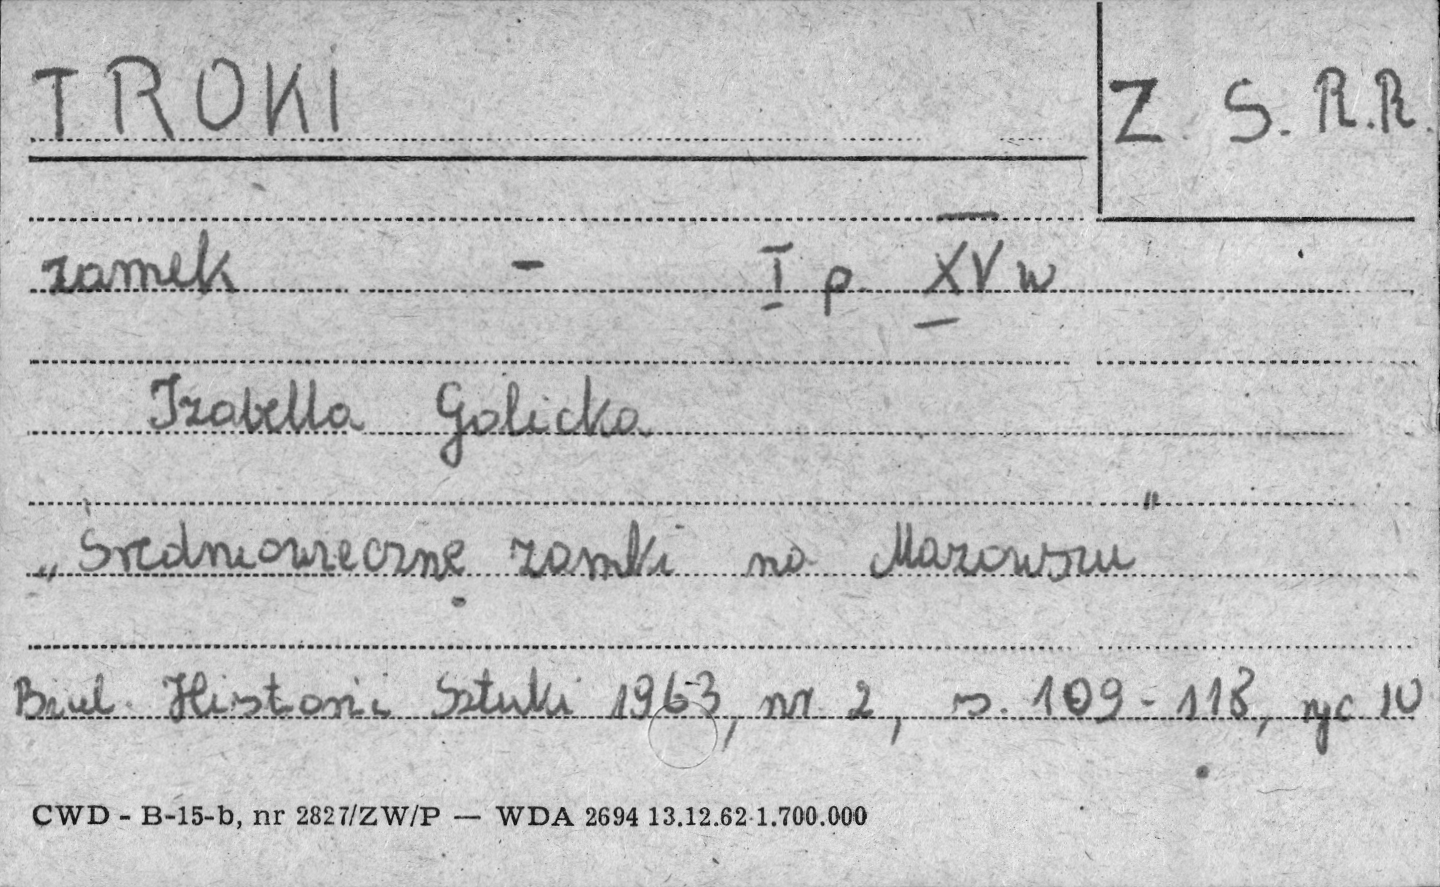 TROKI
Z. S. R. R.
zamek - I p. XV w
Izabella Galicka
„Średniowieczne zamki na Mazowszu"
Biul. Historii Sztuki 1963, nr. 2, s. 109-118, ryc 10
CWD - B-15-b, nr 2827/ZW/P — WDA 2694 13.12.62 1.700.000